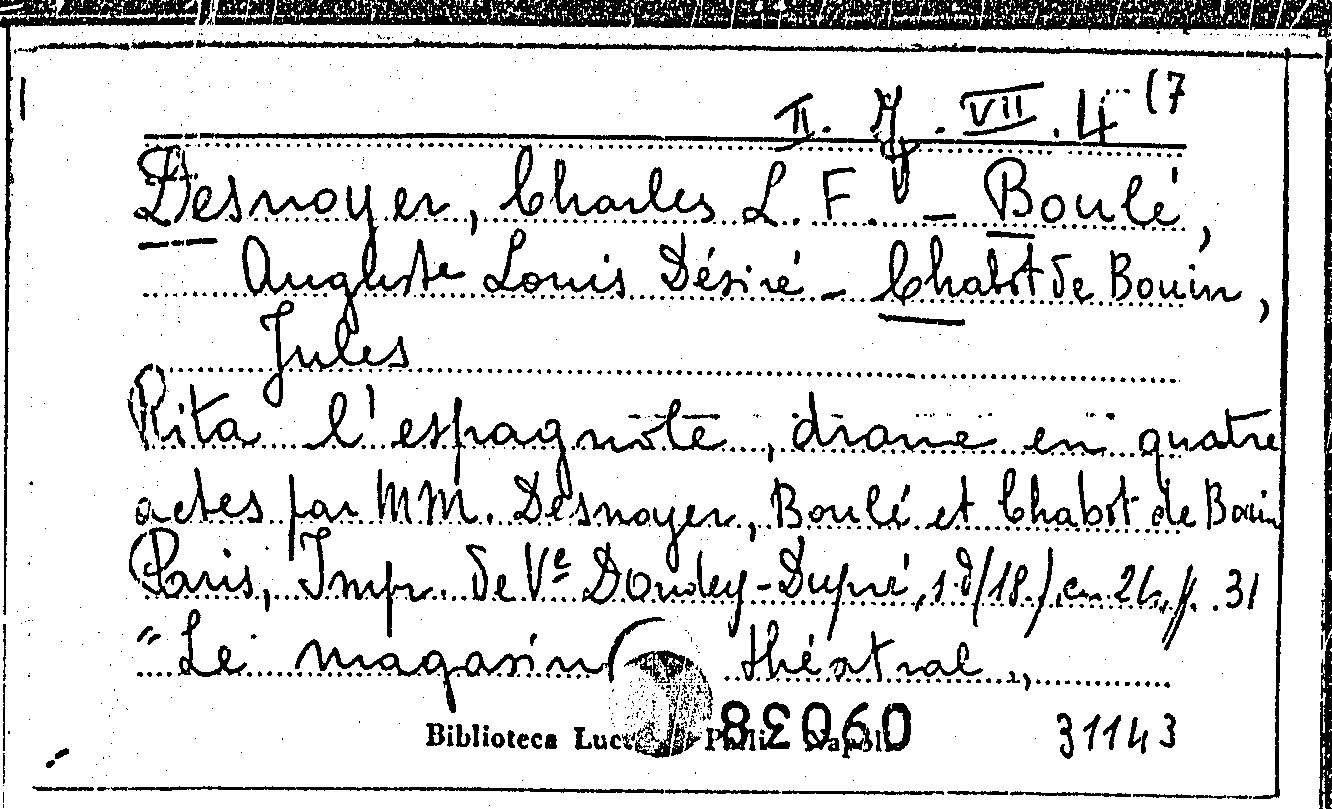 II. 7. VII. 4 (7
Desnoyer, Charles L. F. - Boulé,
Auguste Louis Désiré - Chabot de Bouin,
Jules
Rita l'espagnole, drame en quatre
actes par MM. Desnoyer, Boulé et Chabot de Bouin
Paris, Impr. de Vᵉ Dondey-Dupré, s.d/18./, cm. 26, p. 31
"Le magasin théatral,,
Biblioteca Napoli
31143